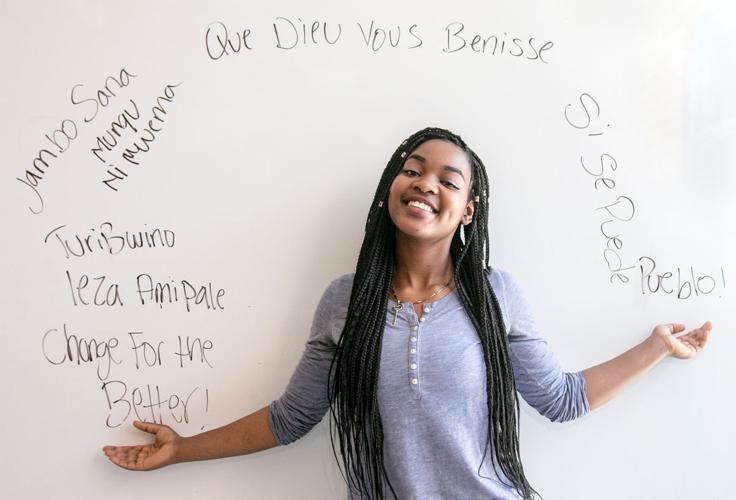 Que Dieu Vous Benisse
Jambo Sana
Mungu
Ni Mwema
TuriBwino
leza Amipale
Change For the
Better!
Si Se Puede
Pueblo!